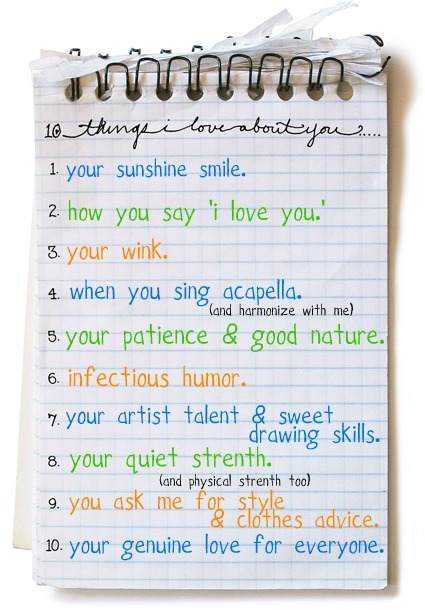 10 things i love about you.....
1. your sunshine smile.
2. how you say 'i love you.'
3. your wink.
4. when you sing acapella.
(and harmonize with me)
5. your patience & good nature.
6. infectious humor.
7. your artist talent & sweet
drawing skills.
8. your quiet strenth.
(and physical strenth too)
9. you ask me for style
& clothes advice.
10. your genuine love for everyone.